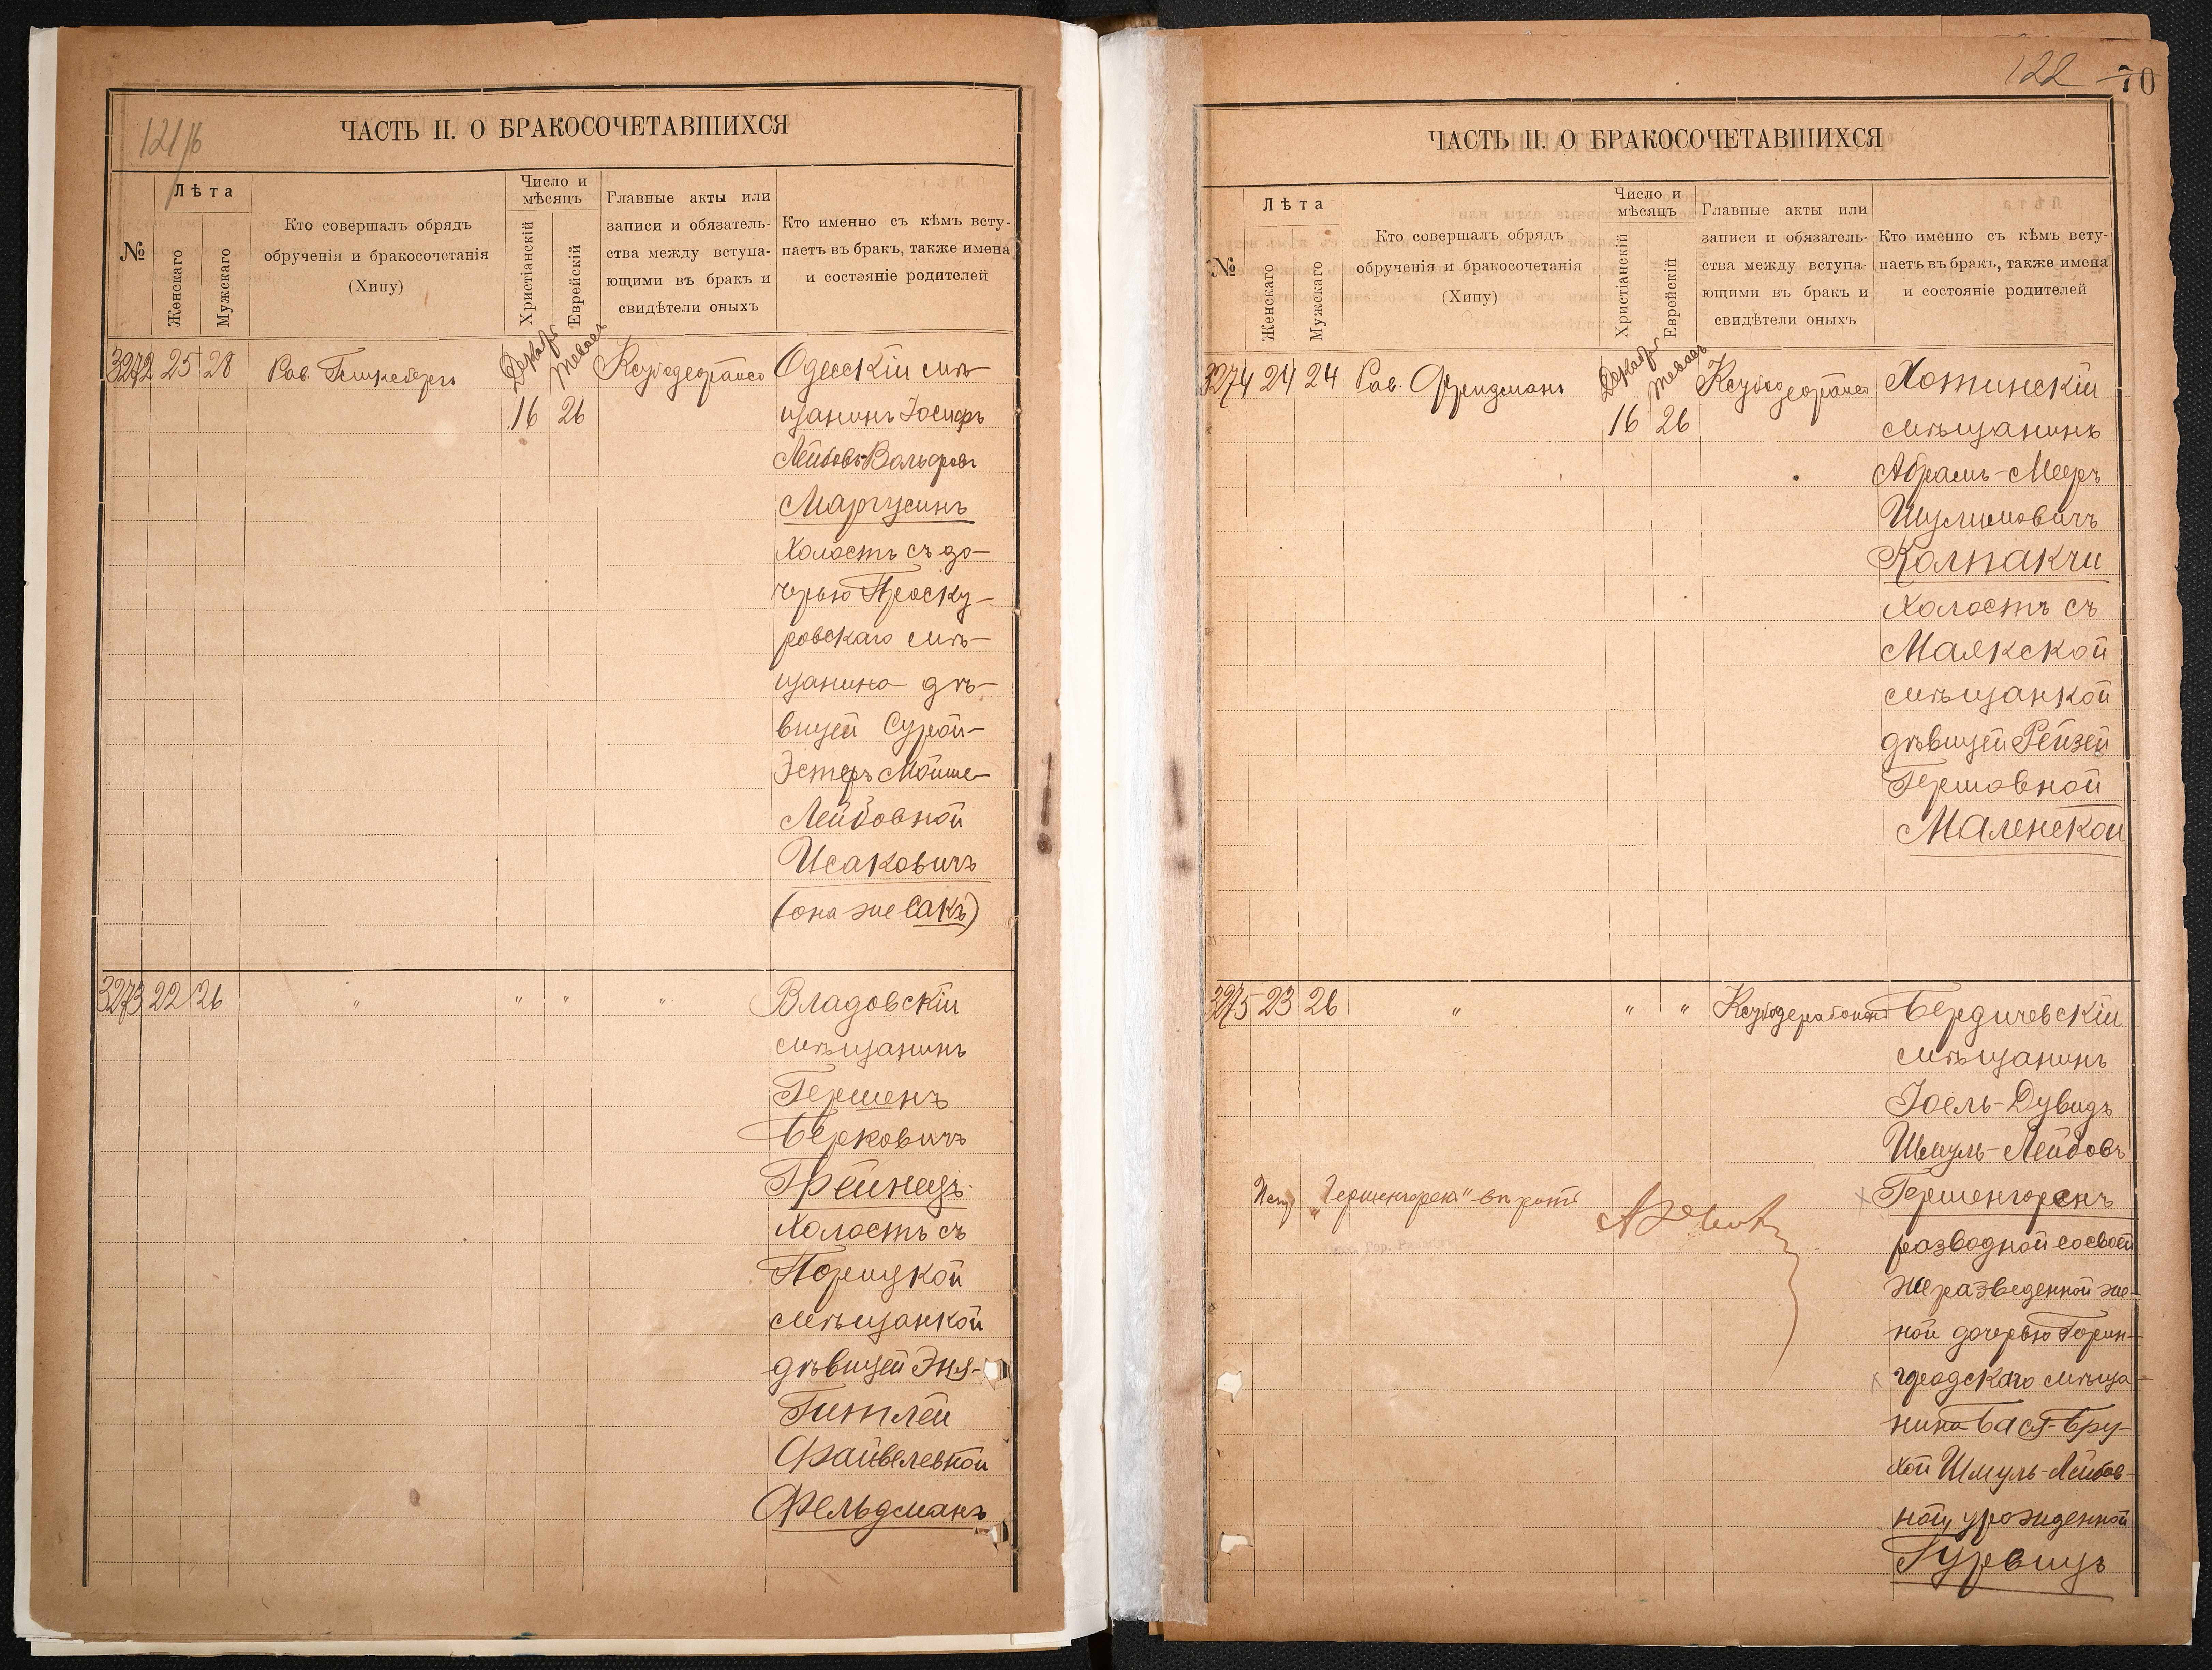 121/б
ЧАСТЬ II. О БРАКОСОЧЕТАВШИХСЯ
№
Лѣта
Женскаго
Мужскаго
Кто совершалъ обрядъ
обрученія и бракосочетанія
(Хипу)
Число и
мѣсяцъ
Христіанскій
Еврейскій
Главные акты или
записи и обязатель-
ства между вступа-
ющими въ бракъ и
свидѣтели оныхъ
Кто именно съ кѣмъ всту-
паетъ въ бракъ, также имена
и состояніе родителей
3272 25 28 Рав. Декабр Тевесъ Одесскій мѣ-
16 26 щанинъ Іосифъ
Лейбовъ-Вольфовъ
Маргусинъ
холостъ съ до-
черью Проску-
ровскаго мѣ-
щанина дѣ-
вицей Сурой-
Эстеръ Мойше-
Лейбовной
Исаковичъ
(она же Сакъ)
3273 22 26 " " " " Владовскій
мѣщанинъ
Гершенъ
Берковичъ
Грейнецъ
холостъ съ
Порицкой
мѣщанкой
дѣвицей Эня-
Гитлей
Файвелевной
Фельдманъ
122 70
ЧАСТЬ II. О БРАКОСОЧЕТАВШИХСЯ
№
Лѣта
Женскаго
Мужскаго
Кто совершалъ обрядъ
обрученія и бракосочетанія
(Хипу)
Число и
мѣсяцъ
Христіанскій
Еврейскій
Главные акты или
записи и обязатель-
ства между вступа-
ющими въ бракъ и
свидѣтели оныхъ
Кто именно съ кѣмъ всту-
паетъ въ бракъ, также имена
и состояніе родителей
3274 24 24 Рав. Фридманъ Декабр Тевесъ Хотинскій
16 26 мѣщанинъ
Абрамъ-Мееръ
Шулимовичъ
Колпакчи
холостъ съ
Маякской
мѣщанкой
дѣвицей Рейзей
Гершовной
Маленской
3275 23 26 " " " Бердичевскій
мѣщанинъ
Іоель-Дувидъ
Шмуль-Лейбовъ
Гершенгоренъ
разводной со своей
же разведенной же-
ной дочерью Горин-
градскаго мѣща-
нина Бася-Бру-
хой Шмуль-Лейбов-
ной, урожденной
Гурвицъ
"Гершенгоренъ"